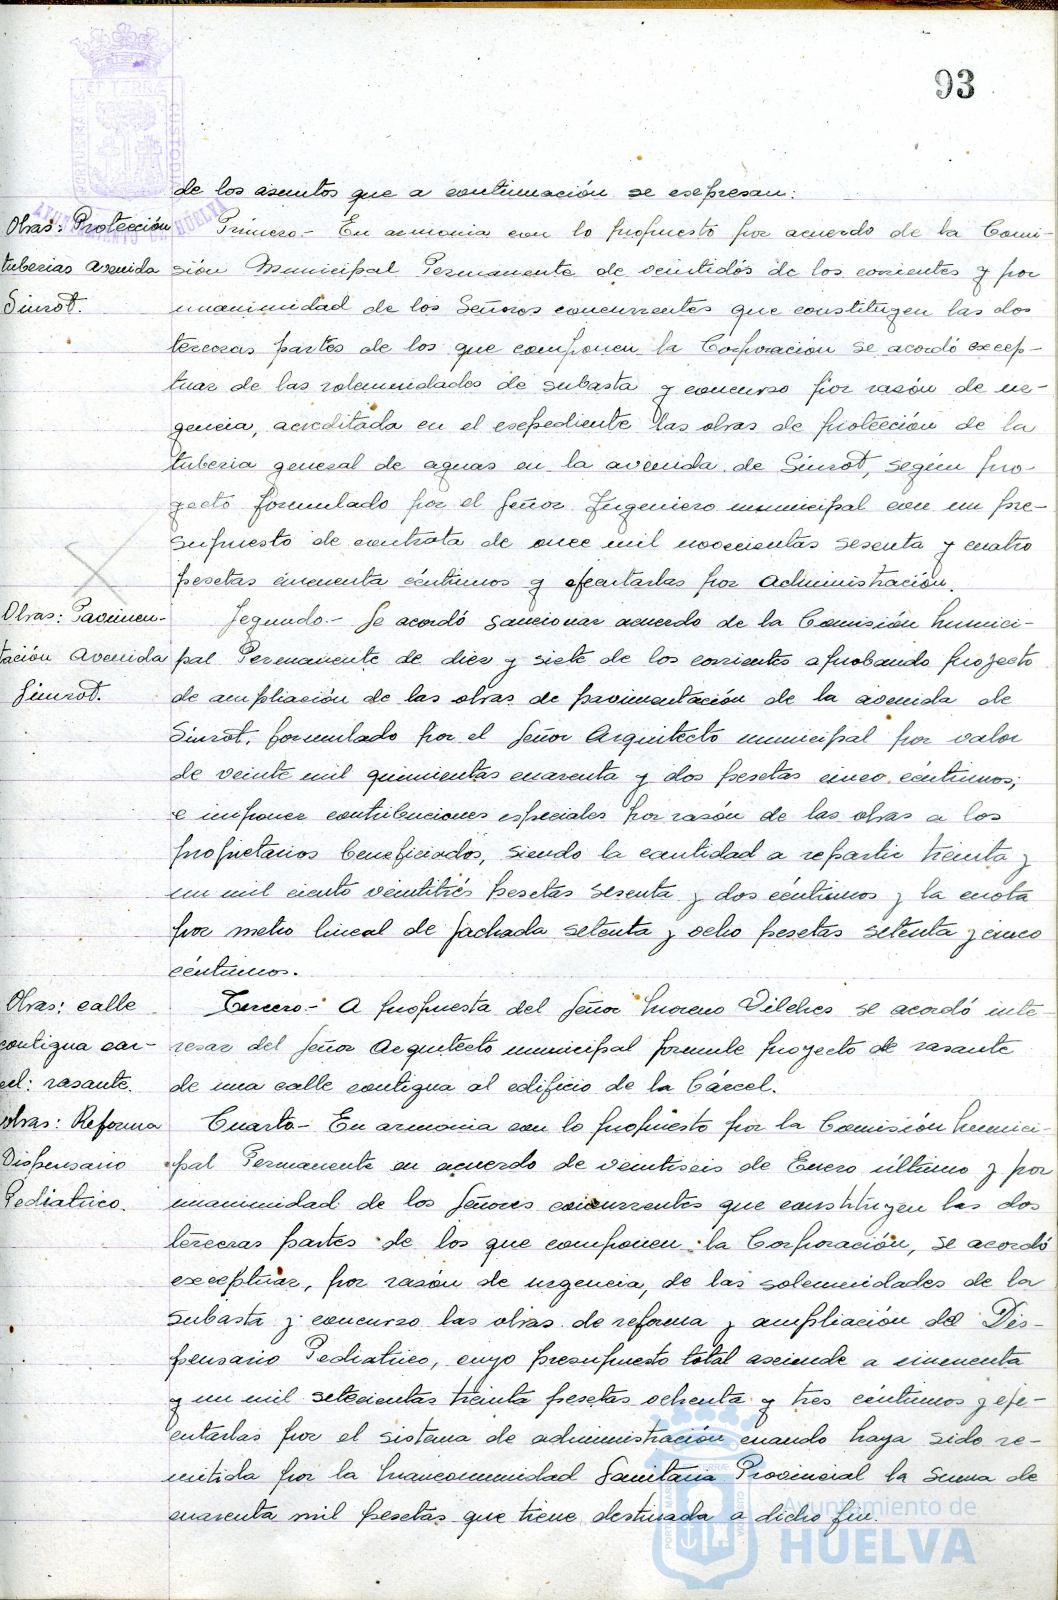 93
de los asuntos que a continuación se expresan:
Obras: Protección
tuberias avenida
Siurot.
Primero.- En armonia con lo propuesto por acuerdo de la Comi-
sión Municipal Permanente de veintidós de los corrientes y por
unanimidad de los Señores concurrentes que constituyen las dos
terceras partes de los que componen la Corporación se acordó excep-
tuar de las solemnidades de subasta y concurso por razón de ur-
gencia, acreditada en el expediente las obras de protección de la
tuberia general de aguas en la avenida de Siurot, según pro-
yecto formulado por el Señor Ingeniero municipal con un pre-
supuesto de contrata de once mil novecientas sesenta y cuatro
pesetas cincuenta céntimos y ejecutarlas por administración.
Obras: Pavimen-
tación avenida
Siurot.
Segundo.- Se acordó sancionar acuerdo de la Comisión Munici-
pal Permanente de diez y siete de los corrientes aprobando proyecto
de ampliación de las obras de pavimentación de la avenida de
Siurot, formulado por el Señor Arquitecto municipal por valor
de veinte mil quinientas cuarenta y dos pesetas cinco céntimos;
e imponer contribuciones especiales por razón de las obras a los
propietarios beneficiados, siendo la cantidad a repartir treinta y
un mil ciento veintitrés pesetas sesenta y dos céntimos y la cuota
por metro lineal de fachada setenta y ocho pesetas setenta y cinco
céntimos.
Obras: calle
contigua cár-
cel: rasante.
Tercero.- A propuesta del Señor Moreno Vilches se acordó inte-
resar del Señor Arquitecto municipal formule proyecto de rasante
de una calle contigua al edificio de la Cárcel.
Obras: Reforma
Dispensario
Pediatrico.
Cuarto.- En armonia con lo propuesto por la Comisión Munici-
pal Permanente en acuerdo de veintiseis de Enero último y por
unanimidad de los Señores concurrentes que constituyen las dos
terceras partes de los que componen la Corporación, se acordó
exceptuar, por razón de urgencia, de las solemnidades de la
subasta y concurso las obras de reforma y ampliación del Dis-
pensario Pediatrico, cuyo presupuesto total asciende a cincuenta
y un mil setecientas treinta pesetas ochenta y tres céntimos y eje-
cutarlas por el sistema de administración cuando haya sido re-
mitida por la Mancomunidad Sanitaria Provincial la suma de
cuarenta mil pesetas que tiene destinada a dicho fin.
Ayuntamiento de
HUELVA